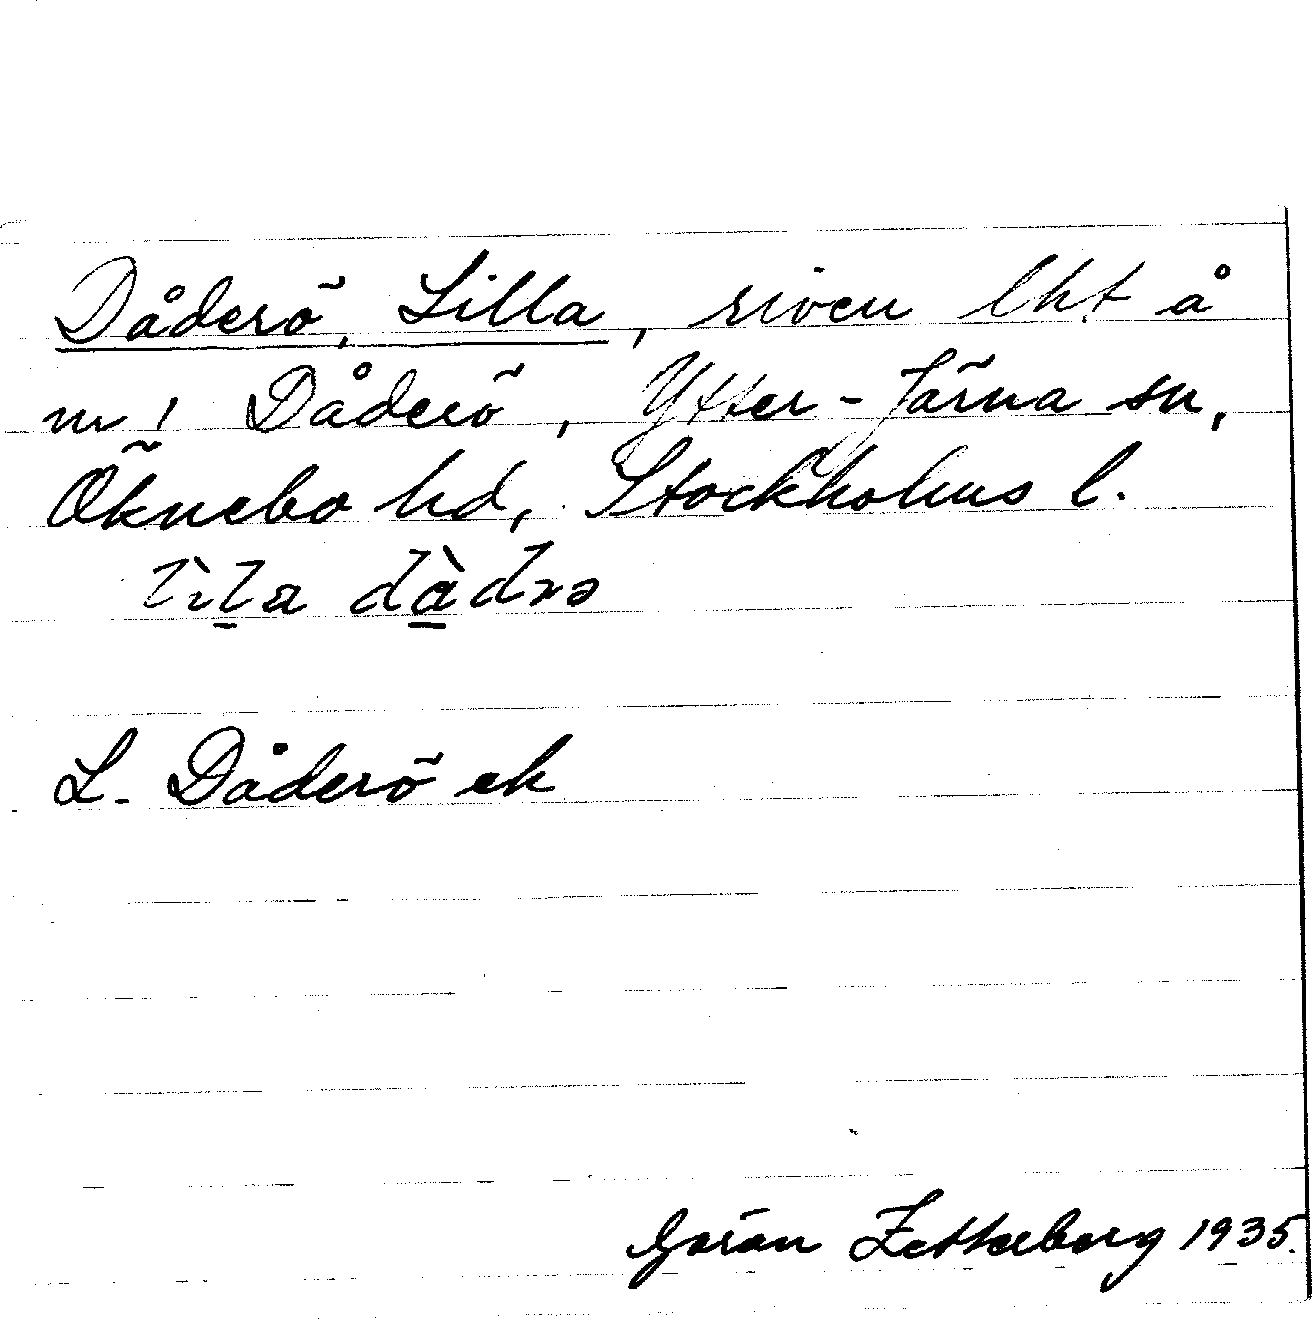 Dåderö, Lilla, riven lht å
m! Dåderö, Ytter-Järna sn,
Öknebo hd, Stockholms l.
lìla dàdrə
L. Dåderö ek
Göran Zetterberg 1935.